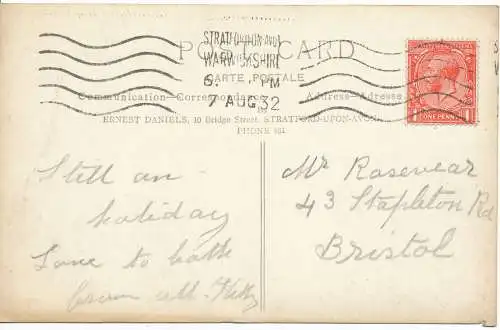 STRATFORD-ON-AVON
WARWICKSHIRE
6. PM
7 AUG 32
POST CARD
CARTE POSTALE
Communication—Correspondance
Address—Adresse
ERNEST DANIELS, 10 Bridge Street, STRATFORD-UPON-AVON
PHONE
POSTAGE REVENUE
1 ONE PENNY 1
Still on
holiday
Love to both
from all.
Mr Rosevear
43 Stapleton Rd
Bristol